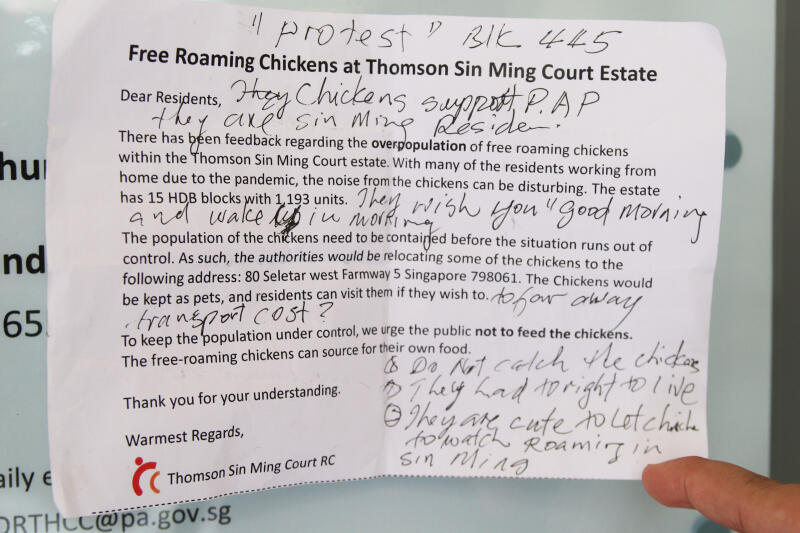 "protest" Blk 445
Free Roaming Chickens at Thomson Sin Ming Court Estate
Dear Residents, They Chickens support P.AP
they are sin Ming Residen.
There has been feedback regarding the overpopulation of free roaming chickens
within the Thomson Sin Ming Court estate. With many of the residents working from
home due to the pandemic, the noise from the chickens can be disturbing. The estate
has 15 HDB blocks with 1,193 units. They wish you "good morning
and wake up in morning
The population of the chickens need to be contained before the situation runs out of
control. As such, the authorities would be relocating some of the chickens to the
following address: 80 Seletar west Farmway 5 Singapore 798061. The Chickens would
be kept as pets, and residents can visit them if they wish to. to far away
transport cost?
To keep the population under control, we urge the public not to feed the chickens.
The free-roaming chickens can source for their own food.
Do Not catch the chickens
They had to right to live
Thank you for your understanding.
They are cute to Let
to watch Roaming in
Warmest Regards,
sin Ming
Thomson Sin Ming Court RC
hur
nd
65
aily e
ORTHCC@pa.gov.sg